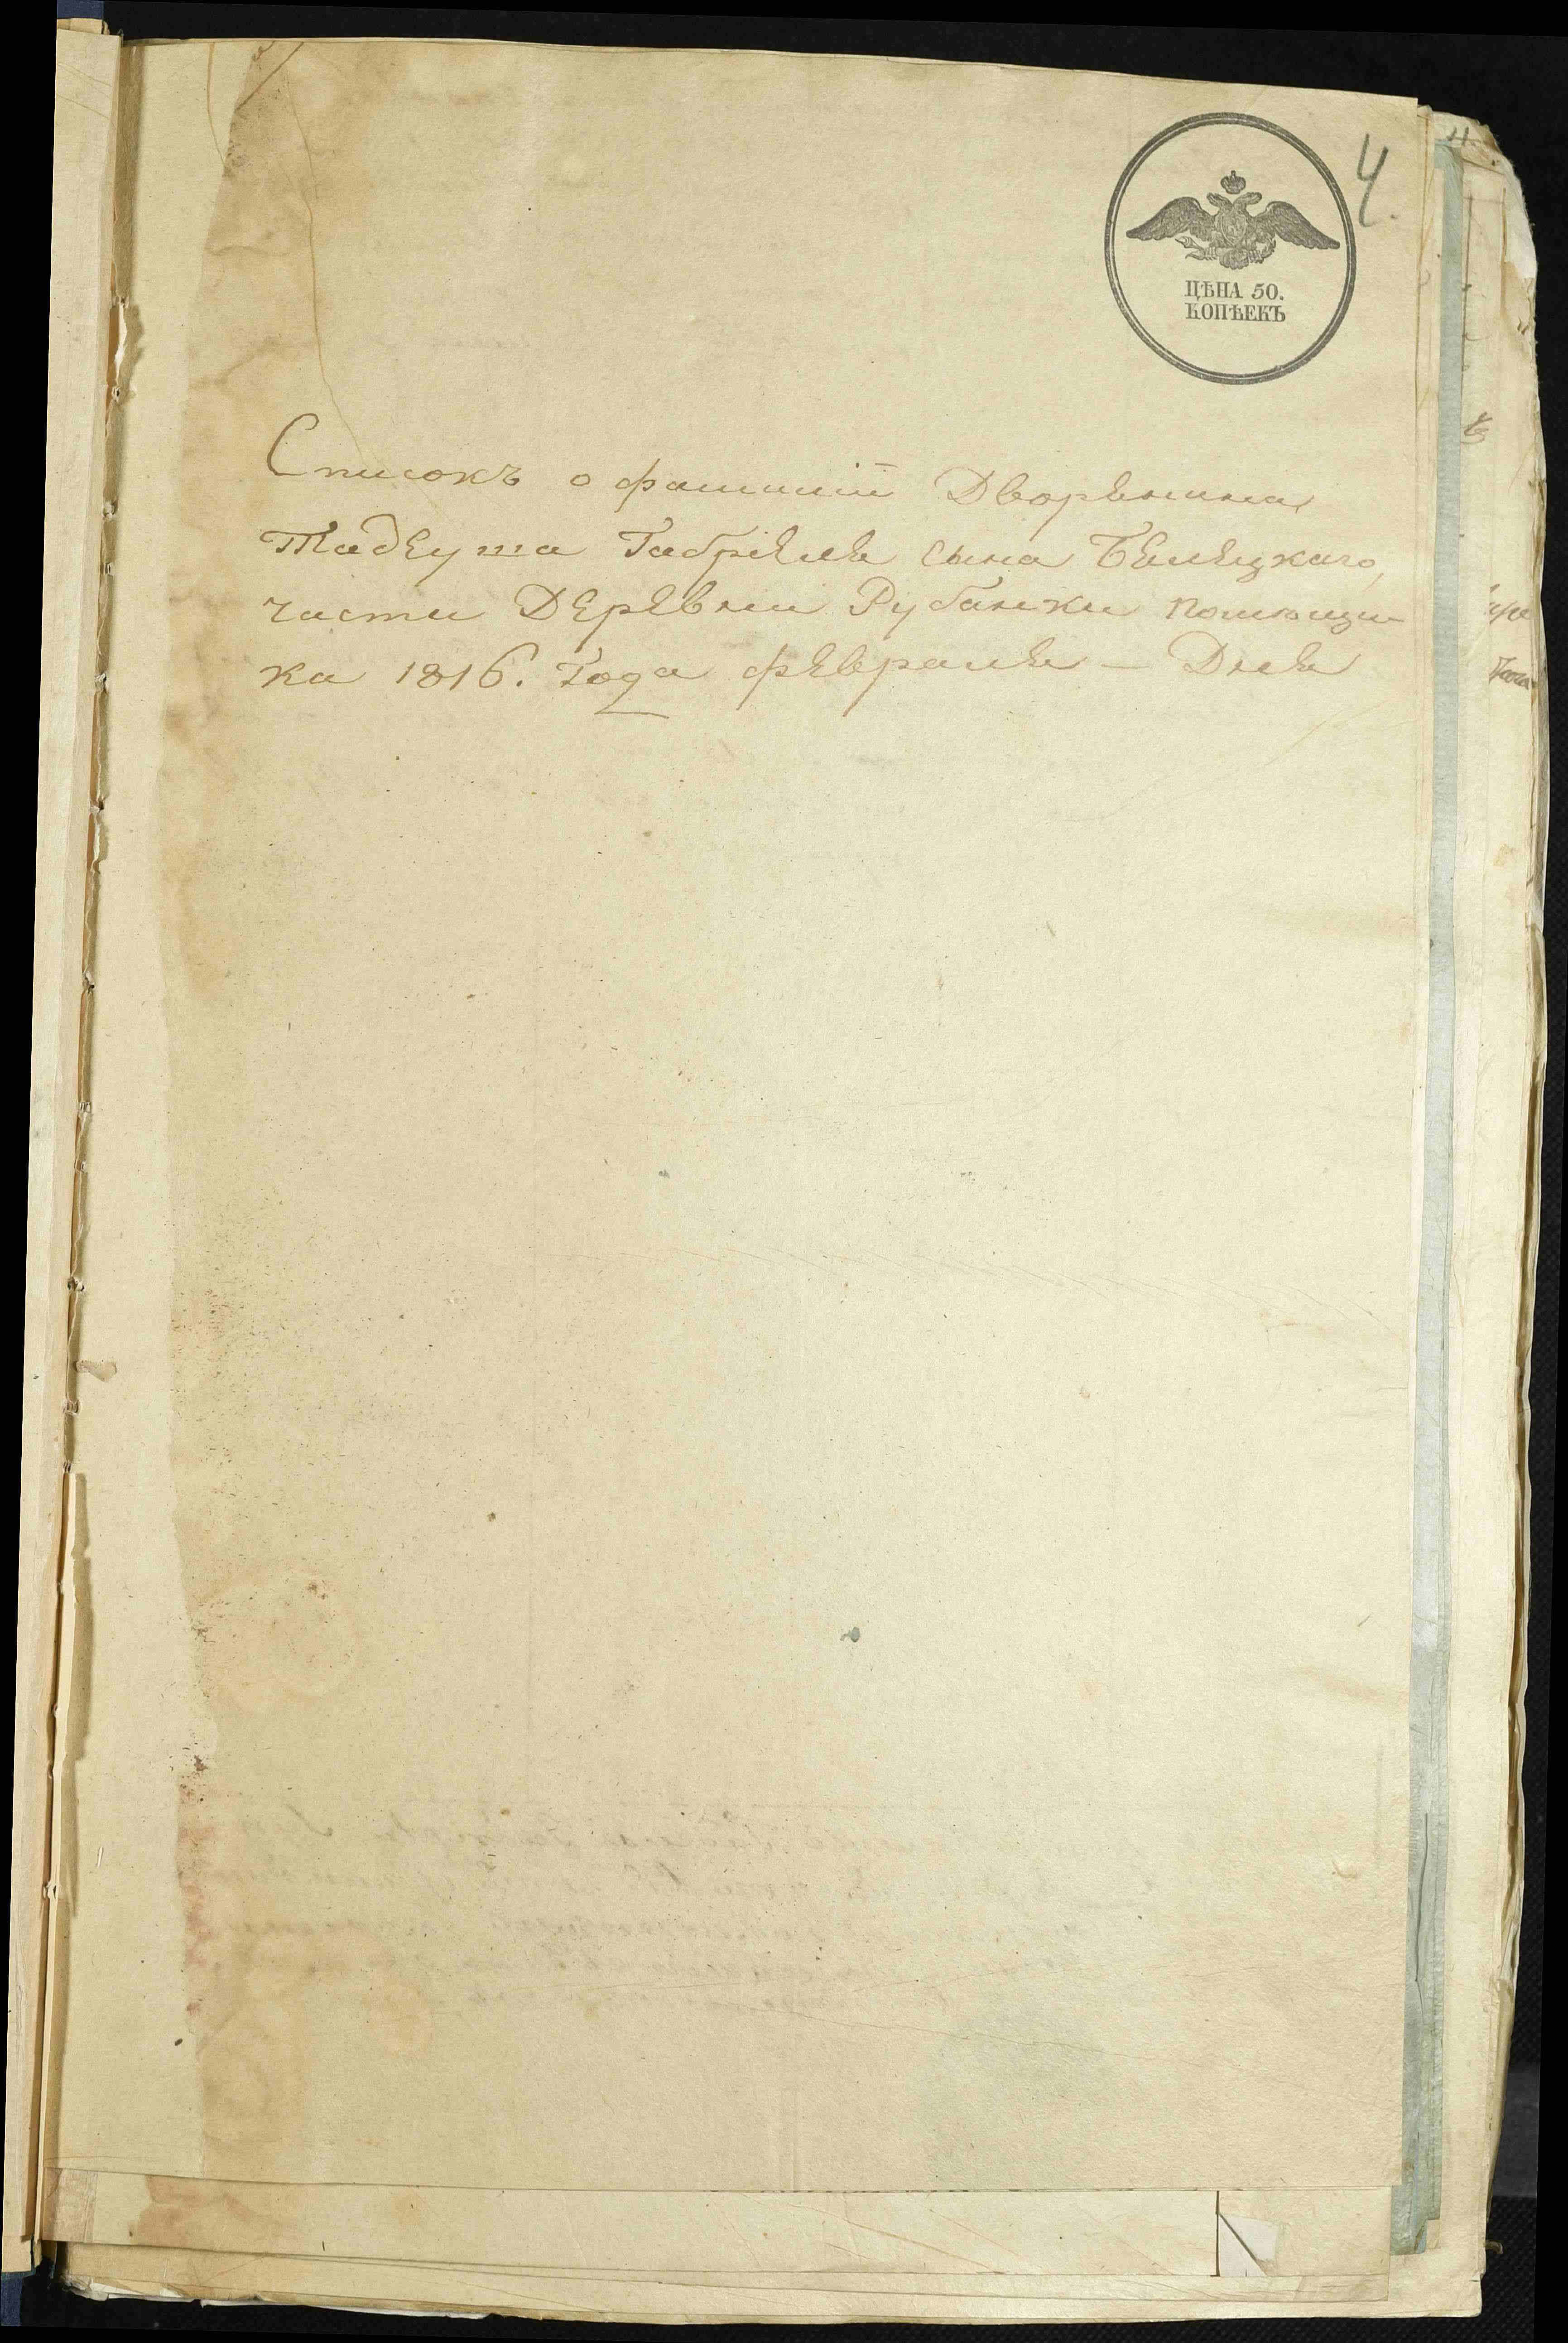 4.
ЦѢНА 50.
КОПѢЕКЪ
Списокъ о фамиліи Дворянина
Тадеуша Габріеля сына Белецкаго,
части Деревни Рубанки помющи-
ка 1816. Года февраля — Дня